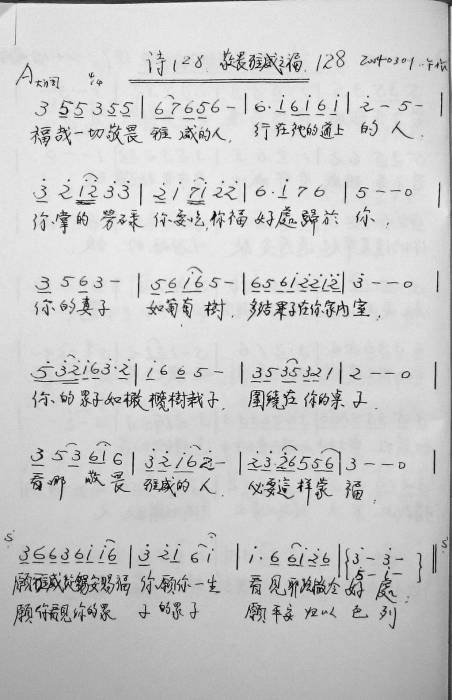 诗128 敬畏雅威之福 128
A大调 4/4
3 5 5 3 5 5 | 6 7 6 5 6 - | 6 · i 6 i 6 i | 2 - 5 - |
福哉一切敬畏 雅威的人, 行在祂的道上 的人,
3 2 i 2 3 3 | 2 i 7 i 2 2 | 6 · i 7 6 | 5 - - 0 |
你掌的劳碌 你要吃,你福 好處歸於 你,
3 5 6 3 - | 5 6 i 6 5 - | 6 5 6 i 2 2 i 2 | 3 - - 0 |
你的妻子 如葡萄樹, 多结果子在你家内室,
5 3 2 i 6 3 · 2 | i 6 6 5 - | 3 5 3 5 3 2 1 | 2 - - 0 |
你的累子如橄欖樹栽子, 圍繞在你的桌子,
3 5 3 6 i 6 | 3 2 i 6 2 - | 2 3 · 2 6 5 5 6 | 3 - - 0 |
看哪 敬畏 雅威的人, 必要這样蒙福,
3 6 6 3 6 i i 6 | 3 · 2 i 6 i | i · 6 6 i 2 6 | 3 - 3 - | 5 - i -
願雅威從錫安賜福 你,願你一生 看見耶路撒冷好處;
願你看見你的累 子的累子 願平安归以色列